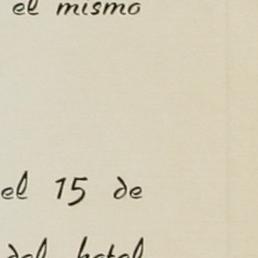 el mismo
el 15 de
del hotel